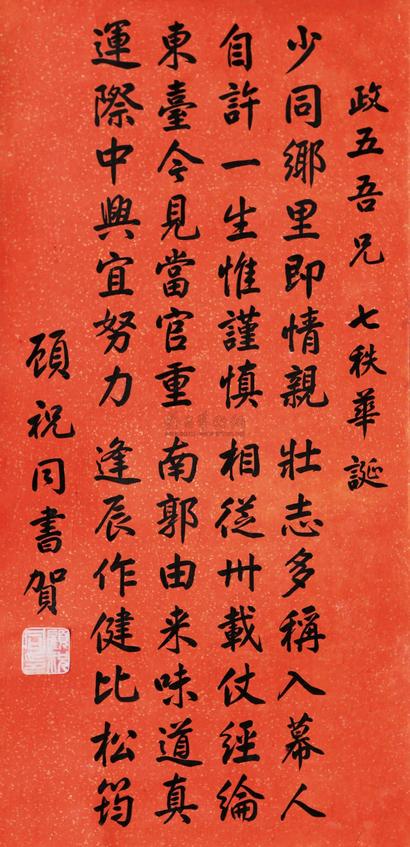 政五吾兄 七秩華誕
少同鄉里即情親 壯志多稱入幕人
自許一生惟謹慎 相從卅載仗經綸
東臺今見當官重 南郭由来味道真
運際中興宜努力 逢辰作健比松筠
顾祝同書賀